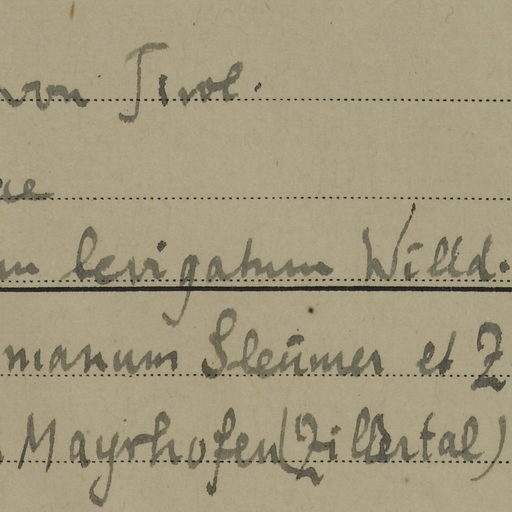 von Tirol.
ae
um levigatum Willd.
manum Sleumer et Z
Mayrhofen (Zillertal)